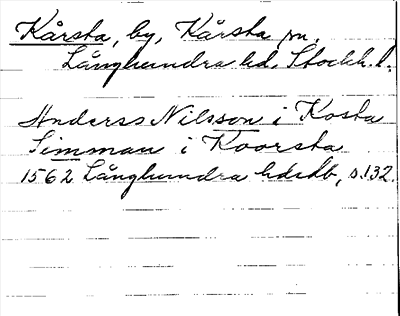 Kårsta, by, Kårsta sn.
Långhundra hd, Stockh. l.
Anderss Nilsson i Kosta
Simman i Koorsta
1562 Långhundra hdsdb, s. 132.